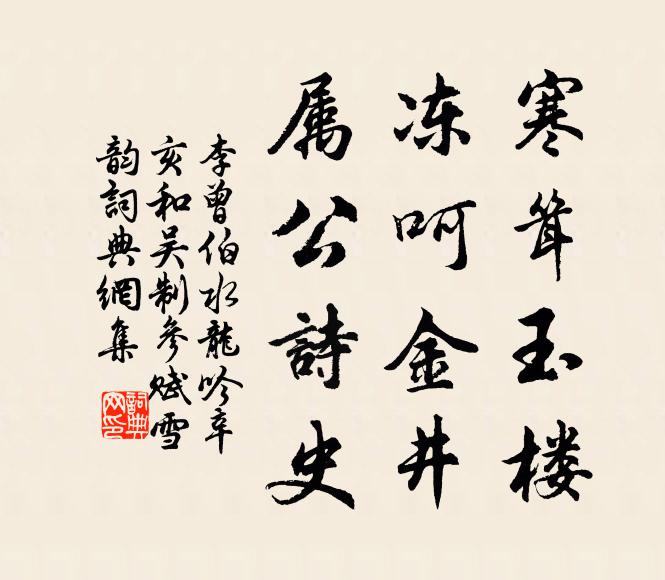 寒耸玉楼
冻呵金井
属公詩史
李曾伯水龍吟辛
亥和吴制參赋雪
韵詞典網集
詞典
网印